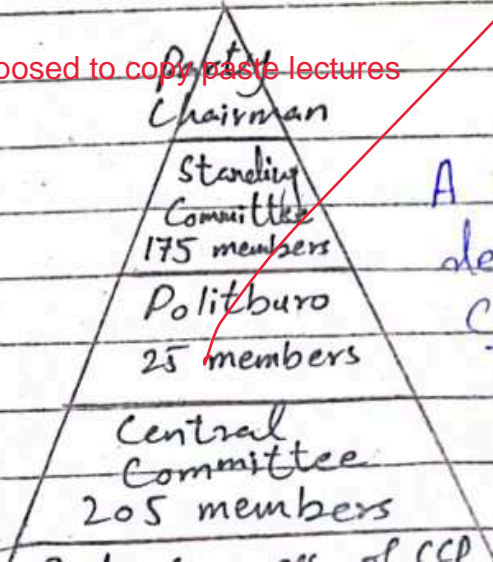 Party
posed to copy paste lectures
Chairman
Standing
Committee
175 members
A
Politburo
de
C
25 members
Central
Committee
205 members
of CCP